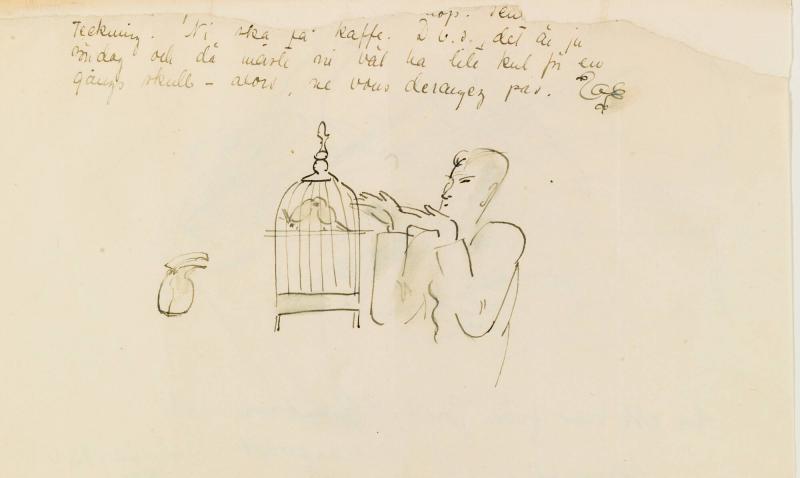 Teckning. Ni ska få kaffe. D.v.s. det är ju
söndag och då måste ni väl ha lite kul för en
gångs skull – alors, ne vous derangez pas.